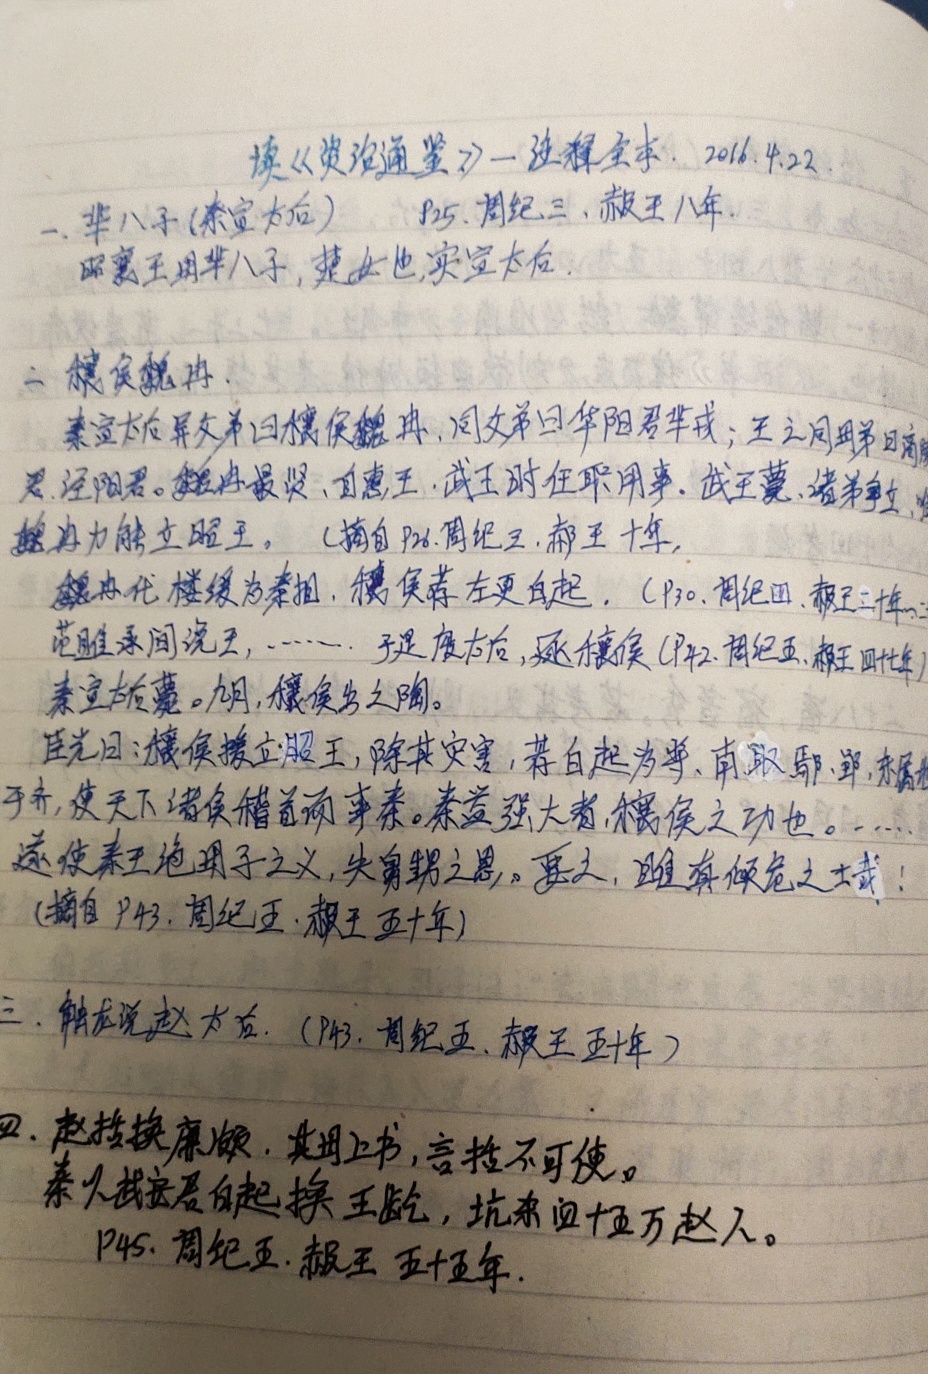 读《资治通鉴》—注释全本. 2016.4.22.
一. 芈八子(秦宣太后) P25.周纪三.赧王八年.
昭襄王母芈八子,楚女也,实宣太后.
二 穰侯魏冉.
秦宣太后异父弟曰穰侯魏冉、同父弟曰华阳君芈戎;王之同母弟曰高陵
君.泾阳君。魏冉最贤、自惠王、武王时任职用事。武王薨、诸弟争立,
魏冉力能立昭王。 (摘自P26.周纪三.赧王十年,
魏冉代楼缓为秦相、穰侯荐左更白起. (P30.周纪四.赧王二十年
范雎承间说王,……. 于是废太后,逐穰侯(P42.周纪五.赧王四十九年)
秦宣太后薨。九月,穰侯出之陶。
臣光曰:穰侯援立昭王,除其灾害,荐白起为将、南取鄢、郢,东属地
于齐,使天下诸侯稽首而事秦。秦益强大者,穰侯之功也。……
遂使秦王绝母子之义,失舅甥之恩。要之,雎真倾危之士哉!
(摘自 P43.周纪五.赧王五十年)
三.触龙说赵太后. (P43.周纪五.赧王五十年)
四.赵括换廉颇.其母上书,言括不可使。
秦以武安君白起换王龁,坑杀四十五万赵人。
P45.周纪五.赧王五十五年.